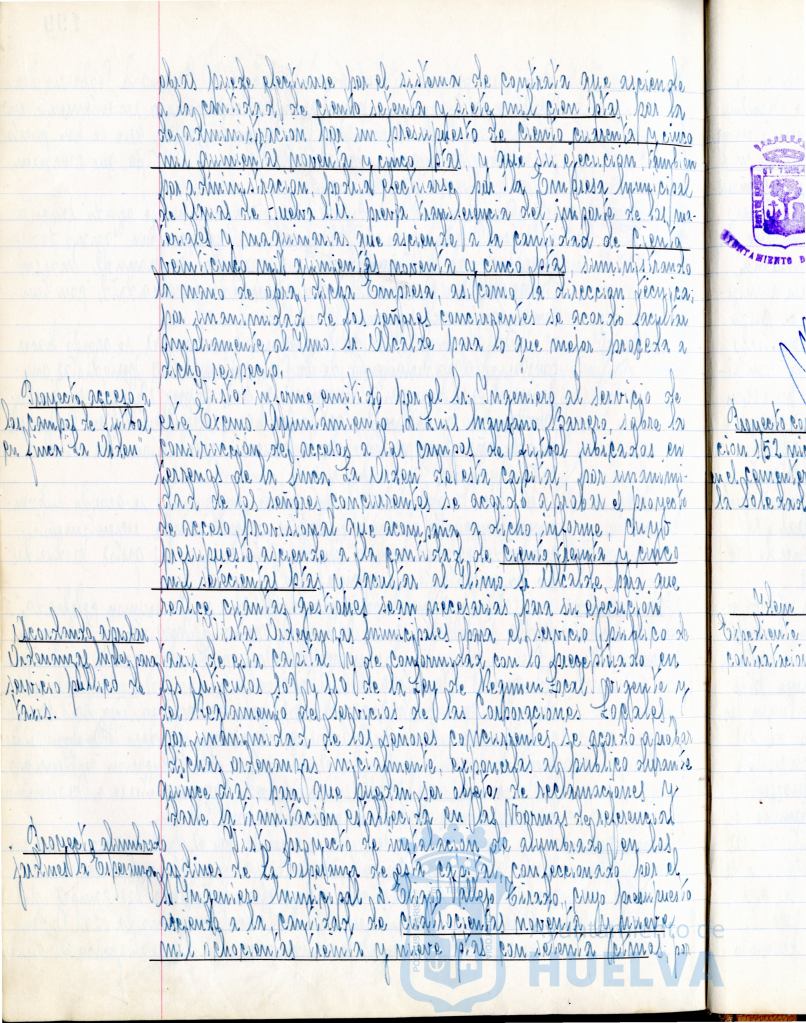 obras puede efectuarse por el sistema de contrata que asciende
a la cantidad de ciento setenta y siete mil cien ptas por la
de administracion por un presupuesto de ciento cuarenta y cinco
mil quinientas noventa y cinco ptas, y que su ejecucion, tambien
por administracion, podria efectuarse por la Empresa Municipal
de Aguas de Huelva S.A. previa transferencia del importe de los ma-
teriales y maquinarias que asciende a la cantidad de ciento
veinticinco mil quinientas noventa y cinco ptas, suministrando
la mano de obra, dicha Empresa, asi como la direccion tecnica;
por unanimidad de los señores concurrentes se acordo facultar
ampliamente al Ilmo Sr Alcalde para lo que mejor proceda a
dicho respecto.
Proyecto acceso a
los campos de futbol
en finca "La Orden"
Visto informe emitido por el Sr Ingeniero al servicio de
este Excmo Ayuntamiento D. Luis Manzano Barrero, sobre la
construccion de accesos a los campos de futbol ubicados en
terrenos de la finca La Orden de esta capital; por unanimi-
dad de los señores concurrentes se acordo aprobar el proyecto
de acceso provisional que acompaña a dicho informe, cuyo
presupuesto asciende a la cantidad de ciento treinta y cinco
mil setecientas ptas y facultar al Iltmo Sr Alcalde para que
realice cuantas gestiones sean necesarias para su ejecucion
Acordando aprobar
Ordenanzas Municipales para
servicio publico de
taxis.
Vistas Ordenanzas municipales para el servicio publico de
taxis de esta capital y de conformidad con lo preceptuado en
los articulos 108 y 110 de la Ley de Regimen Local vigente y
del Reglamento de Servicios de las Corporaciones Locales,
por unanimidad de los señores concurrentes se acordo aprobar
dichas ordenanzas inicialmente, exponerlas al publico durante
quince dias, para que puedan ser objeto de reclamaciones y
darle la tramitacion establecida en las Normas de referencia
Proyecto alumbrado
jardines La Esperanza
Visto proyecto de instalacion de alumbrado en los
jardines de La Esperanza de esta capital, confeccionado por el
Sr Ingeniero Municipal D. Tirado, cuyo presupuesto
asciende a la cantidad de cuatrocientas noventa y nueve
mil ochocientas treinta y nueve ptas con setenta ctmos, por
Proyecto co
cion 152 n
en el cementer
la Soledad
Idem
Expediente
contratacion
AYUNTAMIENTO D
Ayuntamiento de
HUELVA